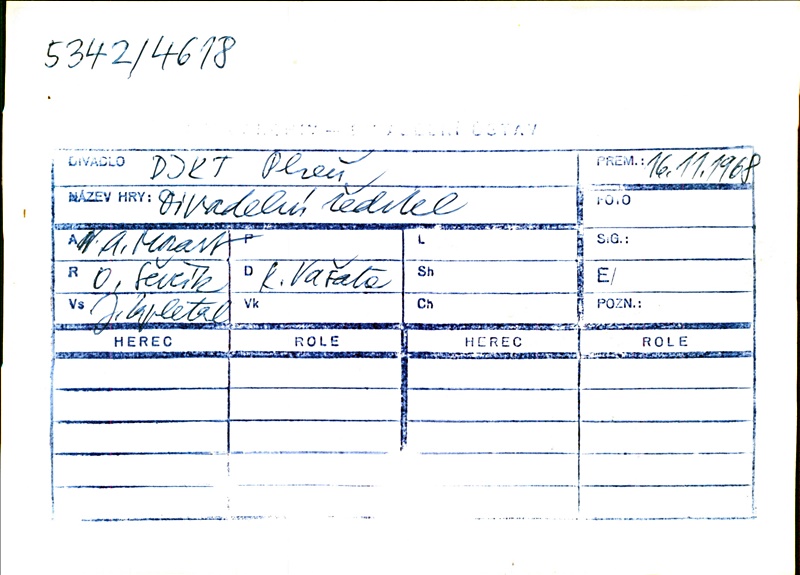 5342/4618
DIVADLO DJKT Plzeň PREM.: 16.11.1968
NÁZEV HRY: Divadelní ředitel FOTO
A W. A. Mozart P L SIG.:
R O. Ševčík D K. Vašata Sh E/
Vs J. Vyletal Vk Ch POZN.:
HEREC ROLE HEREC ROLE